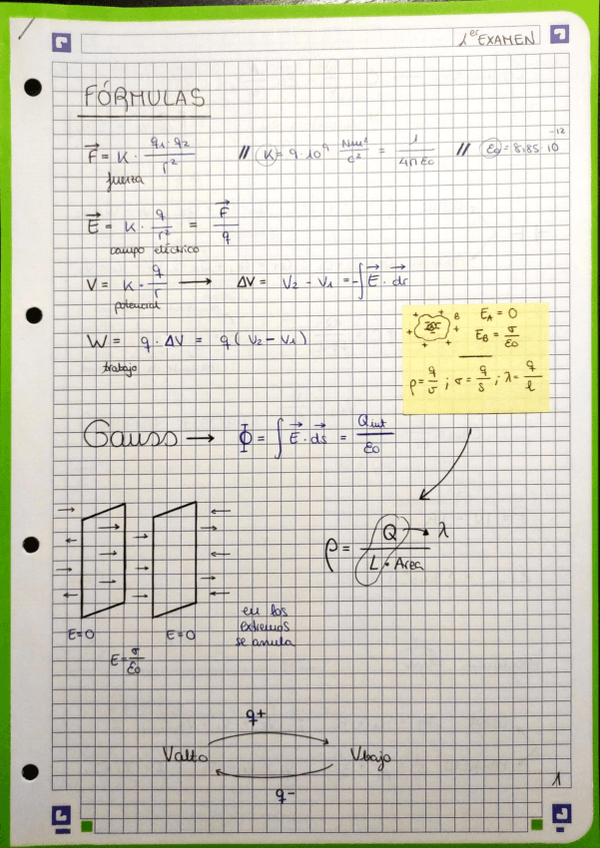 1er EXAMEN
FÓRMULAS
F = K · q1 · q2 / r² // K = 9 · 10⁹ Nm²/c² = 1 / 4π ε0 // ε0 = 8.85 · 10⁻¹²
fuerza
E = K · q / r² = F / q
campo eléctrico
V = K · q / r → ΔV = V2 - V1 = -∫ E · dr
potencial
W = q · ΔV = q (V2 - V1)
trabajo
B EA = 0
EB = σ / ε0
ρ = q / v ; σ = q / s ; λ = q / l
Gauss → Φ = ∫ E · ds = Qint / ε0
ρ = Q / L · Area → λ
E=0 E=0
E = σ / ε0
en los
extremos
se anula
q+
Valto Vbajo
q-
1